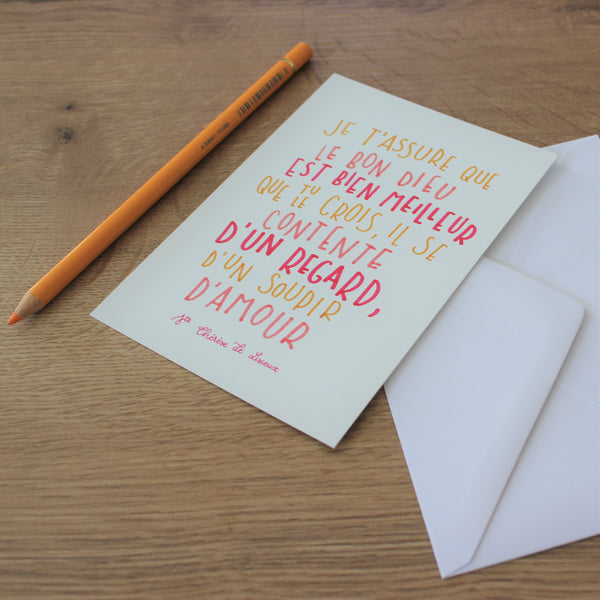 JE T'ASSURE QUE
LE BON DIEU
EST BIEN MEILLEUR
QUE TU LE CROIS, IL SE
CONTENTE
D'UN REGARD,
D'UN SOUPIR
D'AMOUR
Ste Thérèse de Lisieux